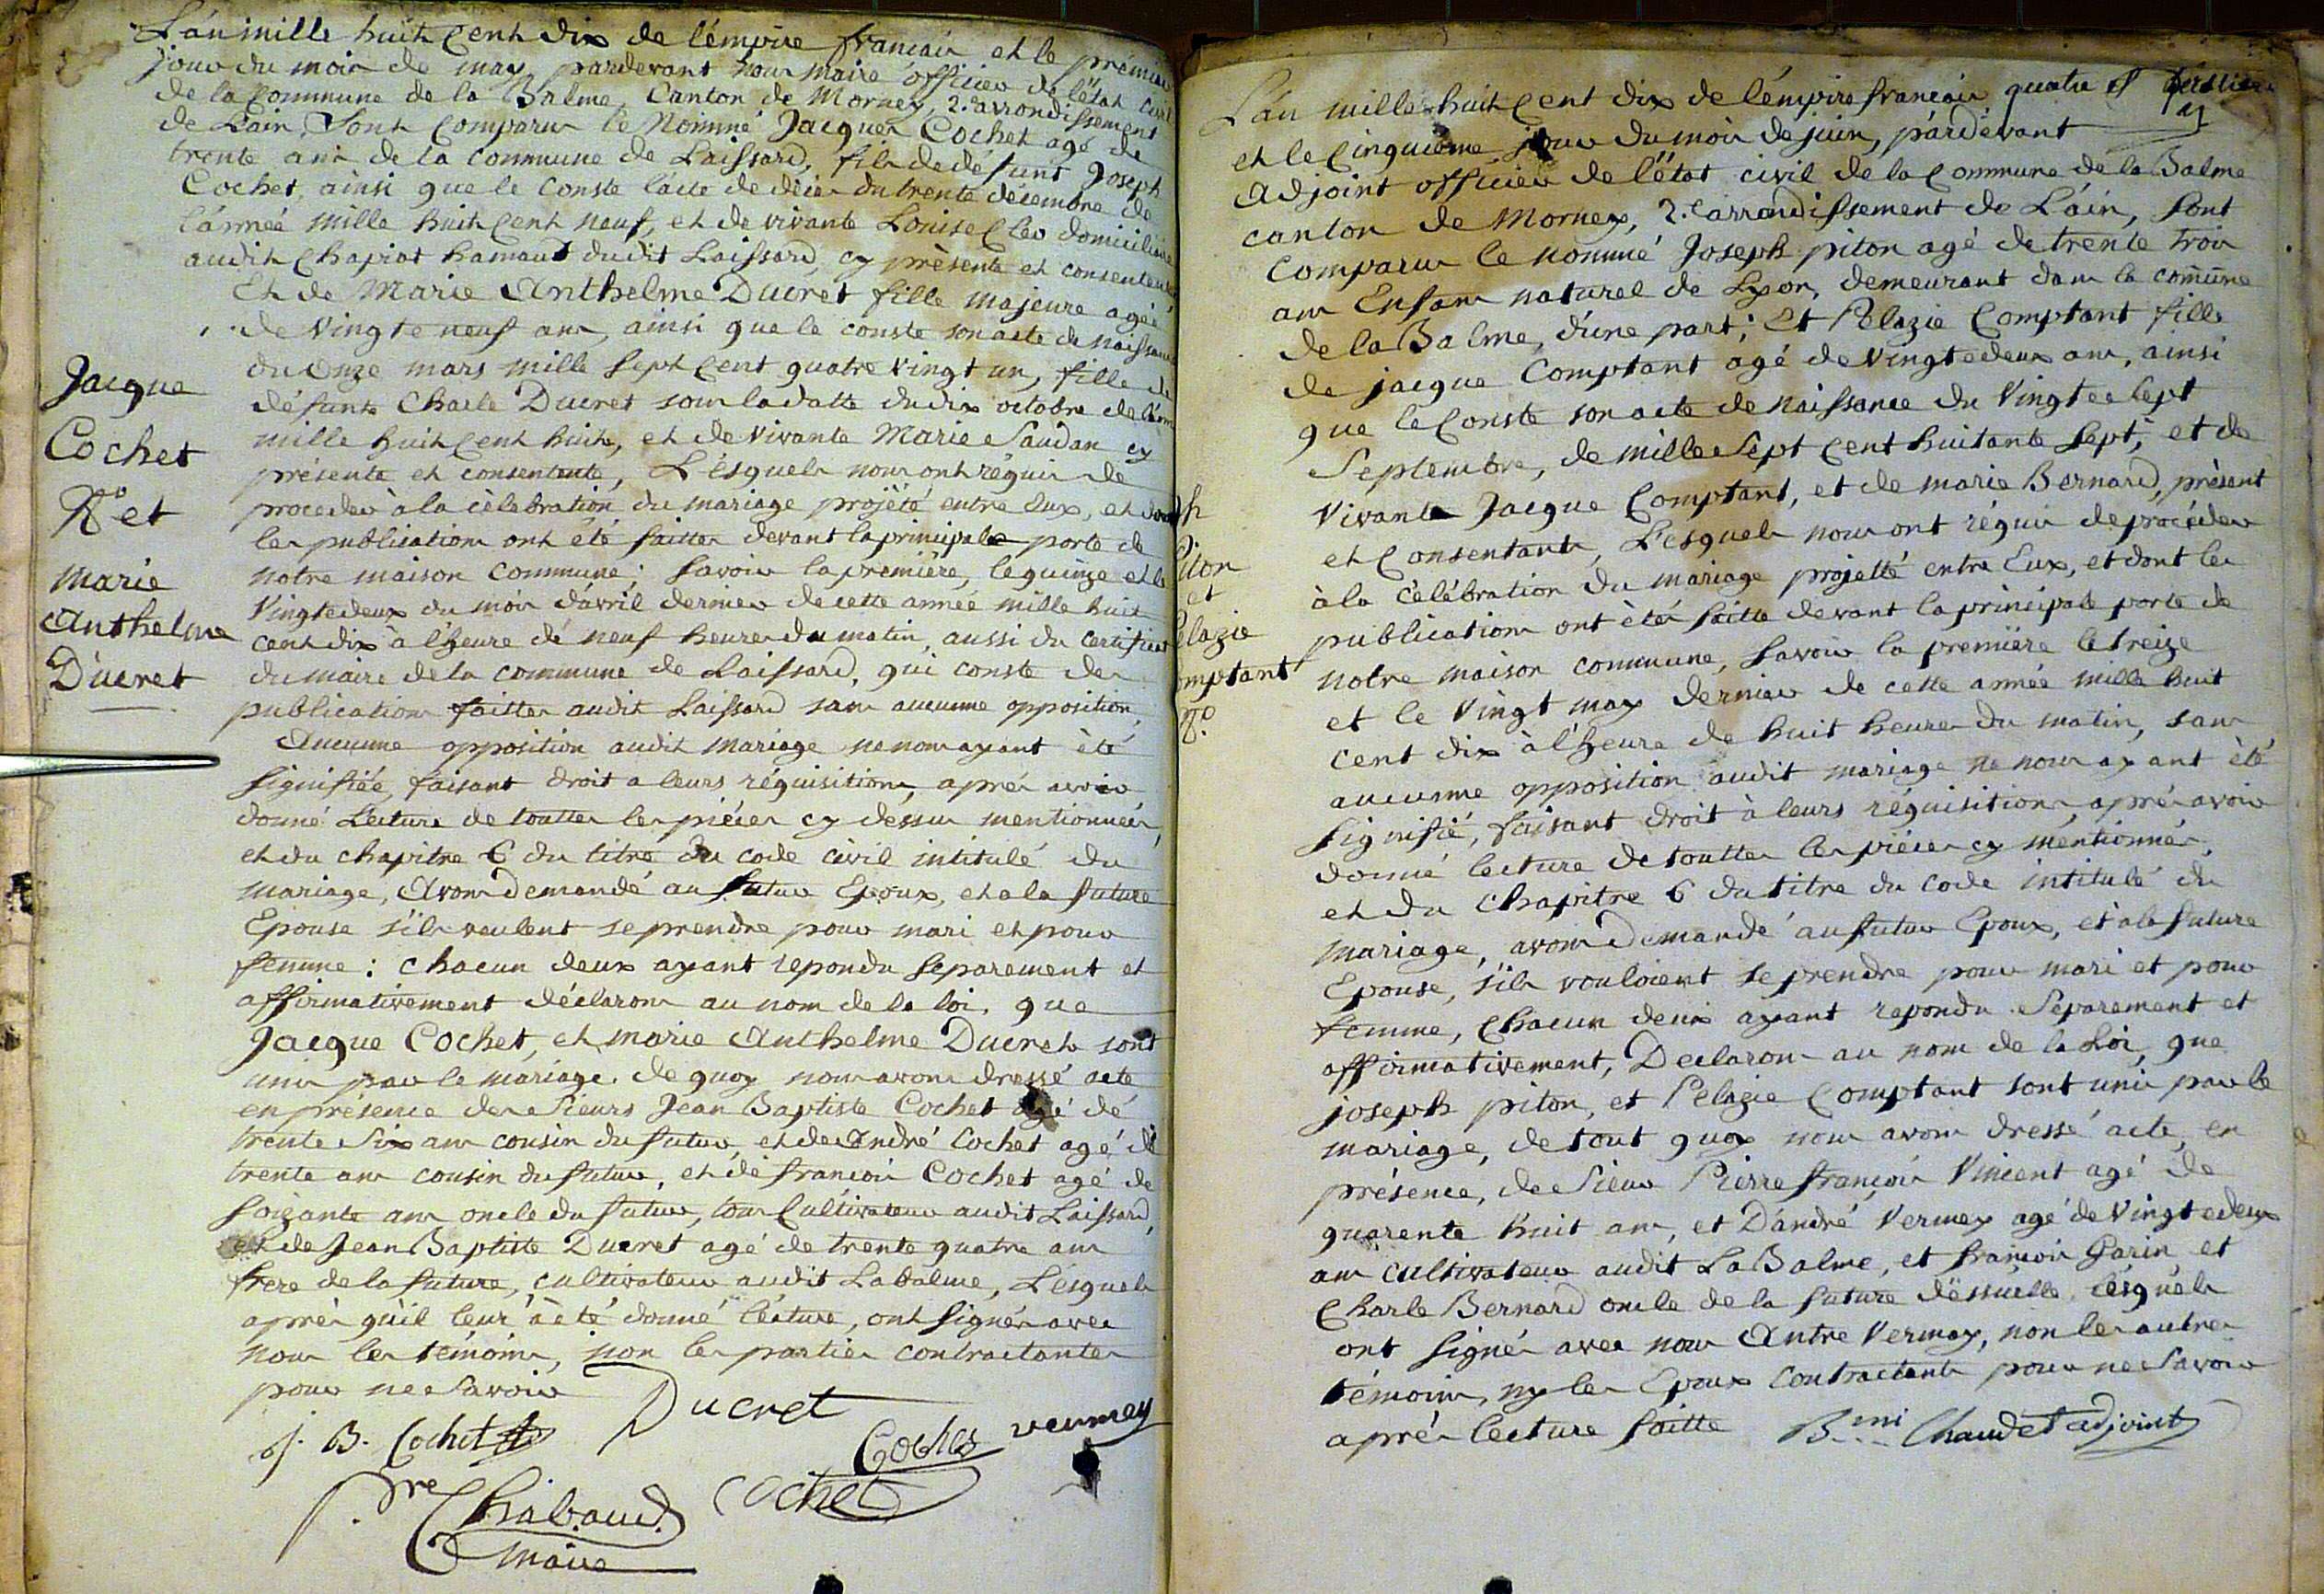 L'an mille huit cent dix de l'émpire francais et le prémier
jour du mois de may pardevant nous maire officier de l'état civil
de la Commune de la Balme, Canton de Mornex, 2.e arrondissement
de Lain, Sont Comparus le Nommé Jacques Cochet agé de
trente ans de la commune de Laissard, fils de défunt Joseph
Cochet, ainsi que le Conste l'acte de décès du trente décembre de
l'année mille huit cent neuf, et de vivante Louise Cler domiciliée
audit Chapiat hamaud dudit Laissard, cy présente et consentente
Et de Marie Anthelme Ducret fille majeure agée
de Vingte neuf ans, ainsi que le conste son acte de naissance
du onze mars mille sept cent quatre vingt un, fille de
défunt Charle Ducret sous la datte du dix octobre de l'année
mille huit cent huite, et de vivante Marie Saudan cy
présente et consentente, Lésquels nous ont réquis de
proceder à la célébration du mariage projété entre Eux, et dont
les publications ont été faittes devant la principale porte de
notre maison commune; Savoir la première, le quinze et le
Vingtedeux du mois d'avril dernier de cette année mille huit
cent dix à l'heure de neuf heures du matin, aussi du certificat
du maire de la commune de Laissard, qui conste des
publications faittes audit Laissard sans aucunne opposition,
Aucunne opposition audit mariage ne nous ayant été
signifiée, faisant droit a leurs réquisitions, après avoir
donné Lecture de touttes les piéces cy dessus mentionnées,
et du chapitre 6 du titre du code civil intitulé du
mariage, Avons Demandé au futur Epoux, et a la future
Epouse s'ils veulent se prendre pour mari et pour
femme : chacun deux ayant repondu Séparement et
affirmativement déclarons au nom de la loi, que
Jacque Cochet, et marie Anthelme Ducret sont
unis par le mariage. de quoy nous avons dressé acte
en présence des Sieurs Jean Baptiste Cochet agé de
trente Six ans cousin du futur, et de André Cochet agé de
trente ans cousin du futur, et de francois Cochet agé de
soizante ans oncle du futur, tous Cultivateur audit Laissard,
et de Jean Baptiste Ducret agé de trente quatre ans
frere de la future, cultivateur audit Labalme, Lésquels
après qu'il leur à été donné lécture, ont signés avec
nous les témoins, non les parties contractantes
pour ne Savoir
Ducret
J. B. Cochet
Cochet
vermey
cochet
P.re Chabaud
Maire
Jacque
Cochet
N.o et
Marie
Anthelme
Ducret
L'an mille huit cent dix de l'émpire francais quatre
et le cinquième jour du mois de juin, pardévant
Adjoint officier de l'état civil de la Commune de la Balme
canton de Mornex, 2.e arrondissement de Lain, Sont
comparus le nommé Joseph piton agé de trente trois
ans Enfant naturel de Lyon, demeurant dans la commune
de la Balme, d'une part; Et Pelazie Comptant fille
de jacque Comptant agé de Vingtedeux ans, ainsi
que le Conste son acte de naissance du Vingte Sept
Septembre, de mille Sept cent huitante Sept, et de
Vivante Jacque Comptant, et de marie Bernard, présent
et Consentants, Lésquels nous ont réquis de procéder
à la célébration du mariage projetté entre Eux, et dont les
publications ont étés faitte devant la principale porte de
notre maison commune, Savoir la première le treize
et le Vingt may dernier de cette année mille huit
cent dix à l'heure de huit heures du matin, sans
aucunne opposition audit mariage ne nous ayant été
Signifié, faisant droit à leurs réquisitions, après avoir
donné lecture de touttes les piéces cy méntionnés,
et du Chapitre 6 du titre du code intitulé du
mariage, avons Demandé au futur Epoux, et à la future
Epouse, s'ils vouloient se prendre pour mari et pour
femme, Chacun deux ayant repondu Séparement et
affirmativement, Déclarons au nom de la Loi, que
joseph piton, et Pélazie Comptant sont unis par le
mariage, de tout quoy nous avons dressé acte, en
présence, de Sieur Pierre françois Vincent agé de
quarente huit ans, et D'andré Vermey agé de Vingtedeux
ans cultivateur audit La Balme, et francois Garin et
Charle Bernard oncle de la future lésquels
ont signés avec nous Antre Vermay, non les autres
témoins, ny les Epoux contractants pour ne Savoir
après lecture faitte
Chaudet adjoint
ph
Piton
et
Pélazie
omptant
N.o